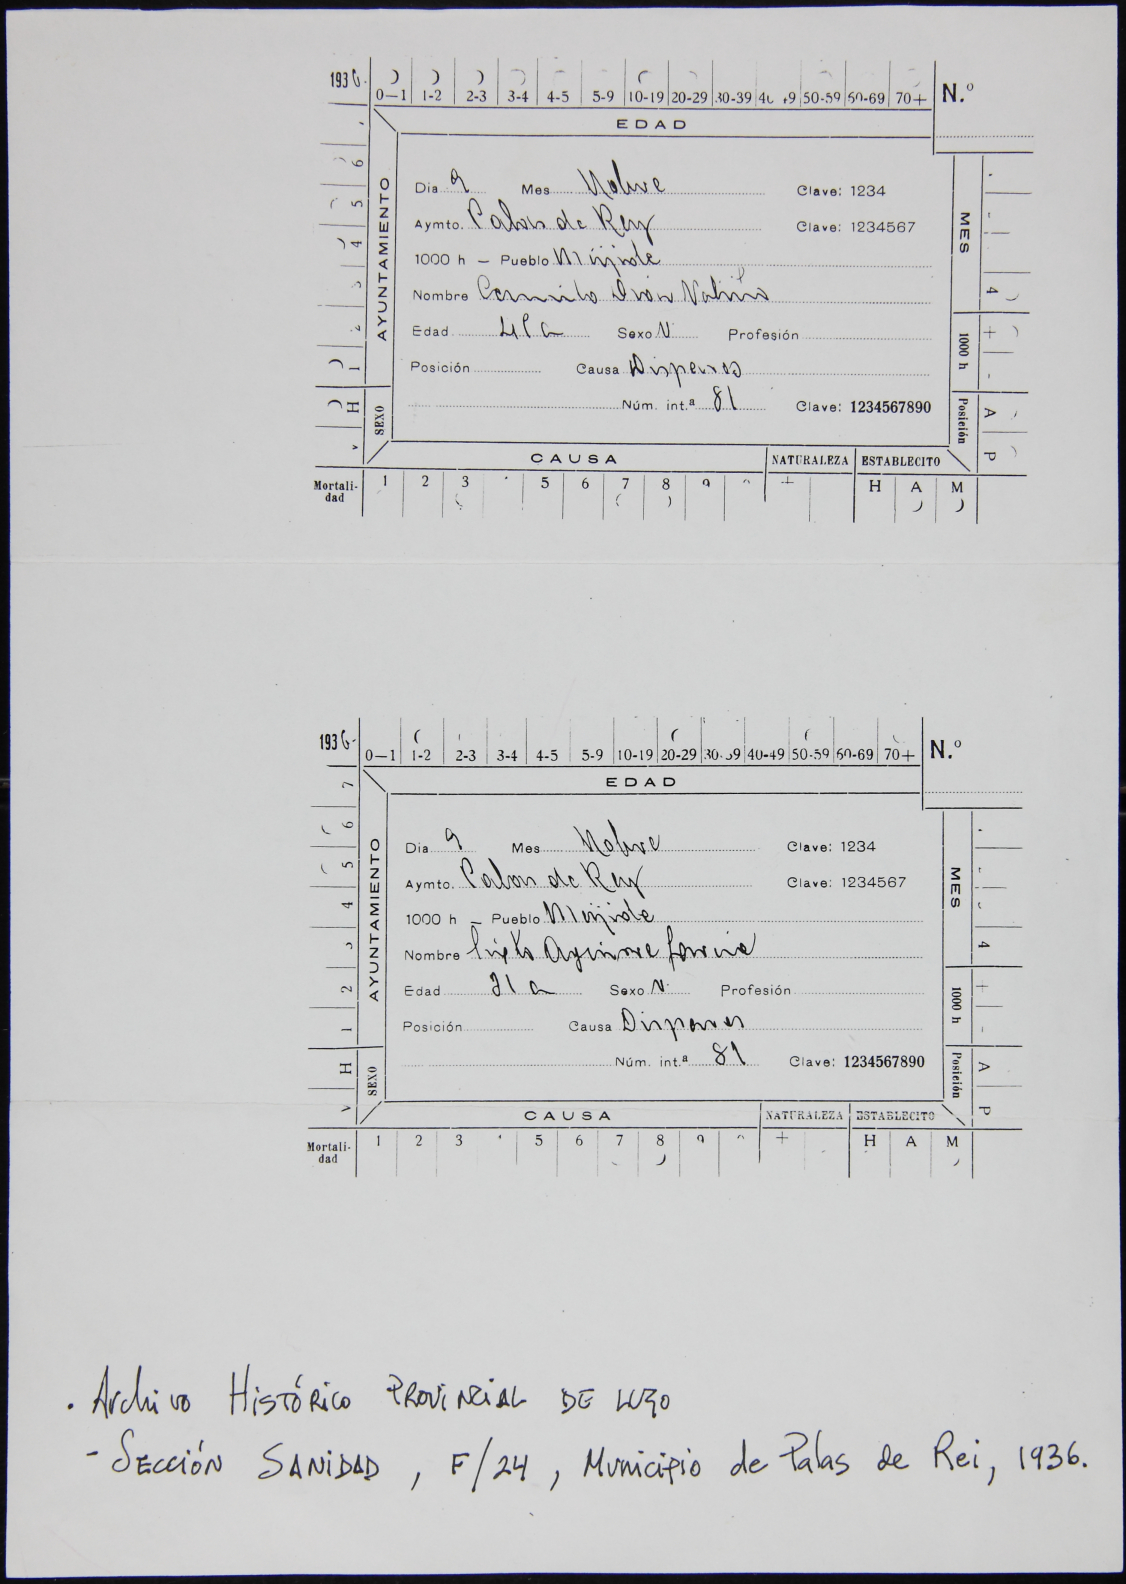 1936.
0—1 1-2 2-3 3-4 4-5 5-9 10-19 20-29 30-39 50-59 60-69 70+ N.º
EDAD
AYUNTAMIENTO
SEXO
MES
1000 h
Posición
6
5
4
1
H
V
4
+
-
A
P
Dia 9 Mes Nobre Clave: 1234
Aymto. Palas de Rey Clave: 1234567
1000 h — Pueblo Meijide
Nombre Camilo
Edad Sexo V. Profesión
Posición Causa Disparos
Núm. int.ª 81 Clave: 1234567890
CAUSA NATURALEZA ESTABLECITO
Mortali-
dad
1 2 3 5 6 7 8 9 + H A M
1936-
0—1 1-2 2-3 3-4 4-5 5-9 10-19 20-29 30-39 40-49 50-59 60-69 70+ N.º
EDAD
AYUNTAMIENTO
SEXO
MES
1000 h
Posición
7
6
5
4
2
1
H
V
4
+
-
A
P
Dia 9 Mes Nobre Clave: 1234
Aymto. Palas de Rey Clave: 1234567
1000 h — Pueblo Meijide
Nombre Sixto Aguirre García
Edad Sexo V. Profesión
Posición Causa Disparos
Núm. int.ª 81 Clave: 1234567890
CAUSA NATURALEZA ESTABLECITO
Mortali-
dad
1 2 3 5 6 7 8 9 + H A M
. Archivo HISTÓRICO PROVINCIAL DE LUGO
- SECCIÓN SANIDAD, F/24, Municipio de Palas de Rei, 1936.